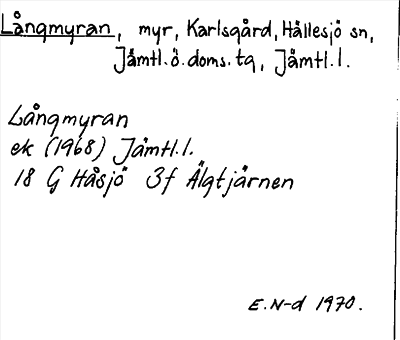 Långmyran, myr, Karlsgård, Hällesjö sn,
Jämtl.ö.doms.tg, Jämtl.l.
Långmyran
ek (1968) Jämtl.l.
18 G Håsjö 3f Älgtjärnen
E.N-d 1970.